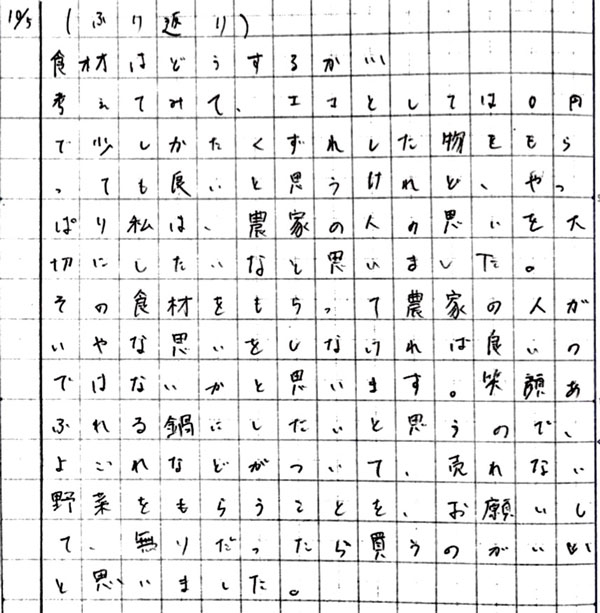 10/5 (ふり返り)
食材はどうするかい
考えてみて、エコとしては0円
で少しかたくずれした物をもら
っても良いと思うけれど、やっ
ぱり私は、農家の人の思いを大
切にしたいなと思いました。
その食材をもらって農家の人が
いやな思いをしなければ良いの
ではないかと思います。笑顔あ
ふれる鍋にしたいと思うので、
よごれなどがついて、売れない
野菜をもらうことを、お願いし
て、無りだったら買うのがいい
と思いました。